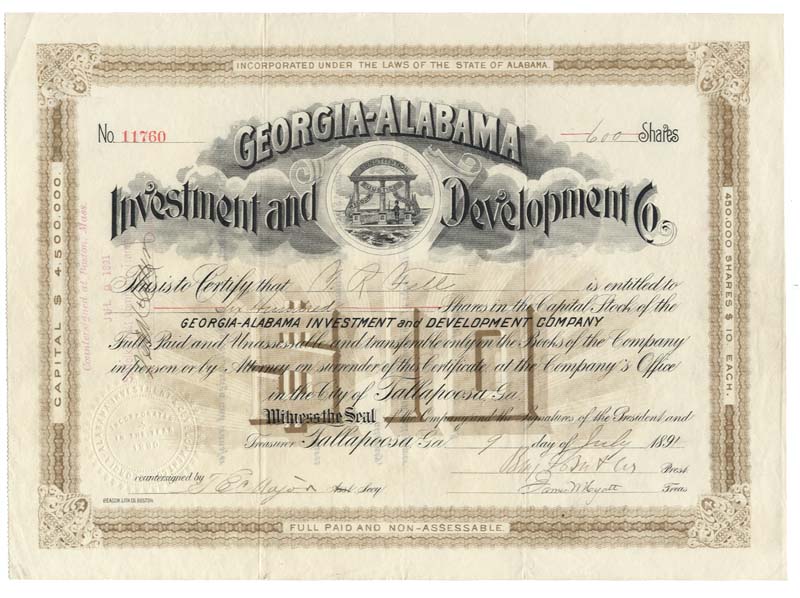 INCORPORATED UNDER THE LAWS OF THE STATE OF ALABAMA.
No 11760
600 Shares
GEORGIA-ALABAMA
Investment and Development Co.
CONSTITUTION
CAPITAL $ 4,500,000.
450,000 SHARES $ 10. EACH.
Countersigned at Boston, Mass.
1891
This is to Certify that W. R. is entitled to
Six Hundred Shares in the Capital Stock of the
GEORGIA-ALABAMA INVESTMENT and DEVELOPMENT COMPANY
Full Paid and Unassessable and transferable only on the Books of the Company
in person or by Attorney on surrender of this Certificate at the Company's Office
in the City of Tallapoosa Ga.
$10
Witness the Seal of the Company and the signatures of the President and
Treasurer Tallapoosa Ga. 9 day of July 1891
Prest
countersigned by Asst Secy
James W Hyatt Treas
BEACON LITH CO. BOSTON.
FULL PAID AND NON-ASSESSABLE.